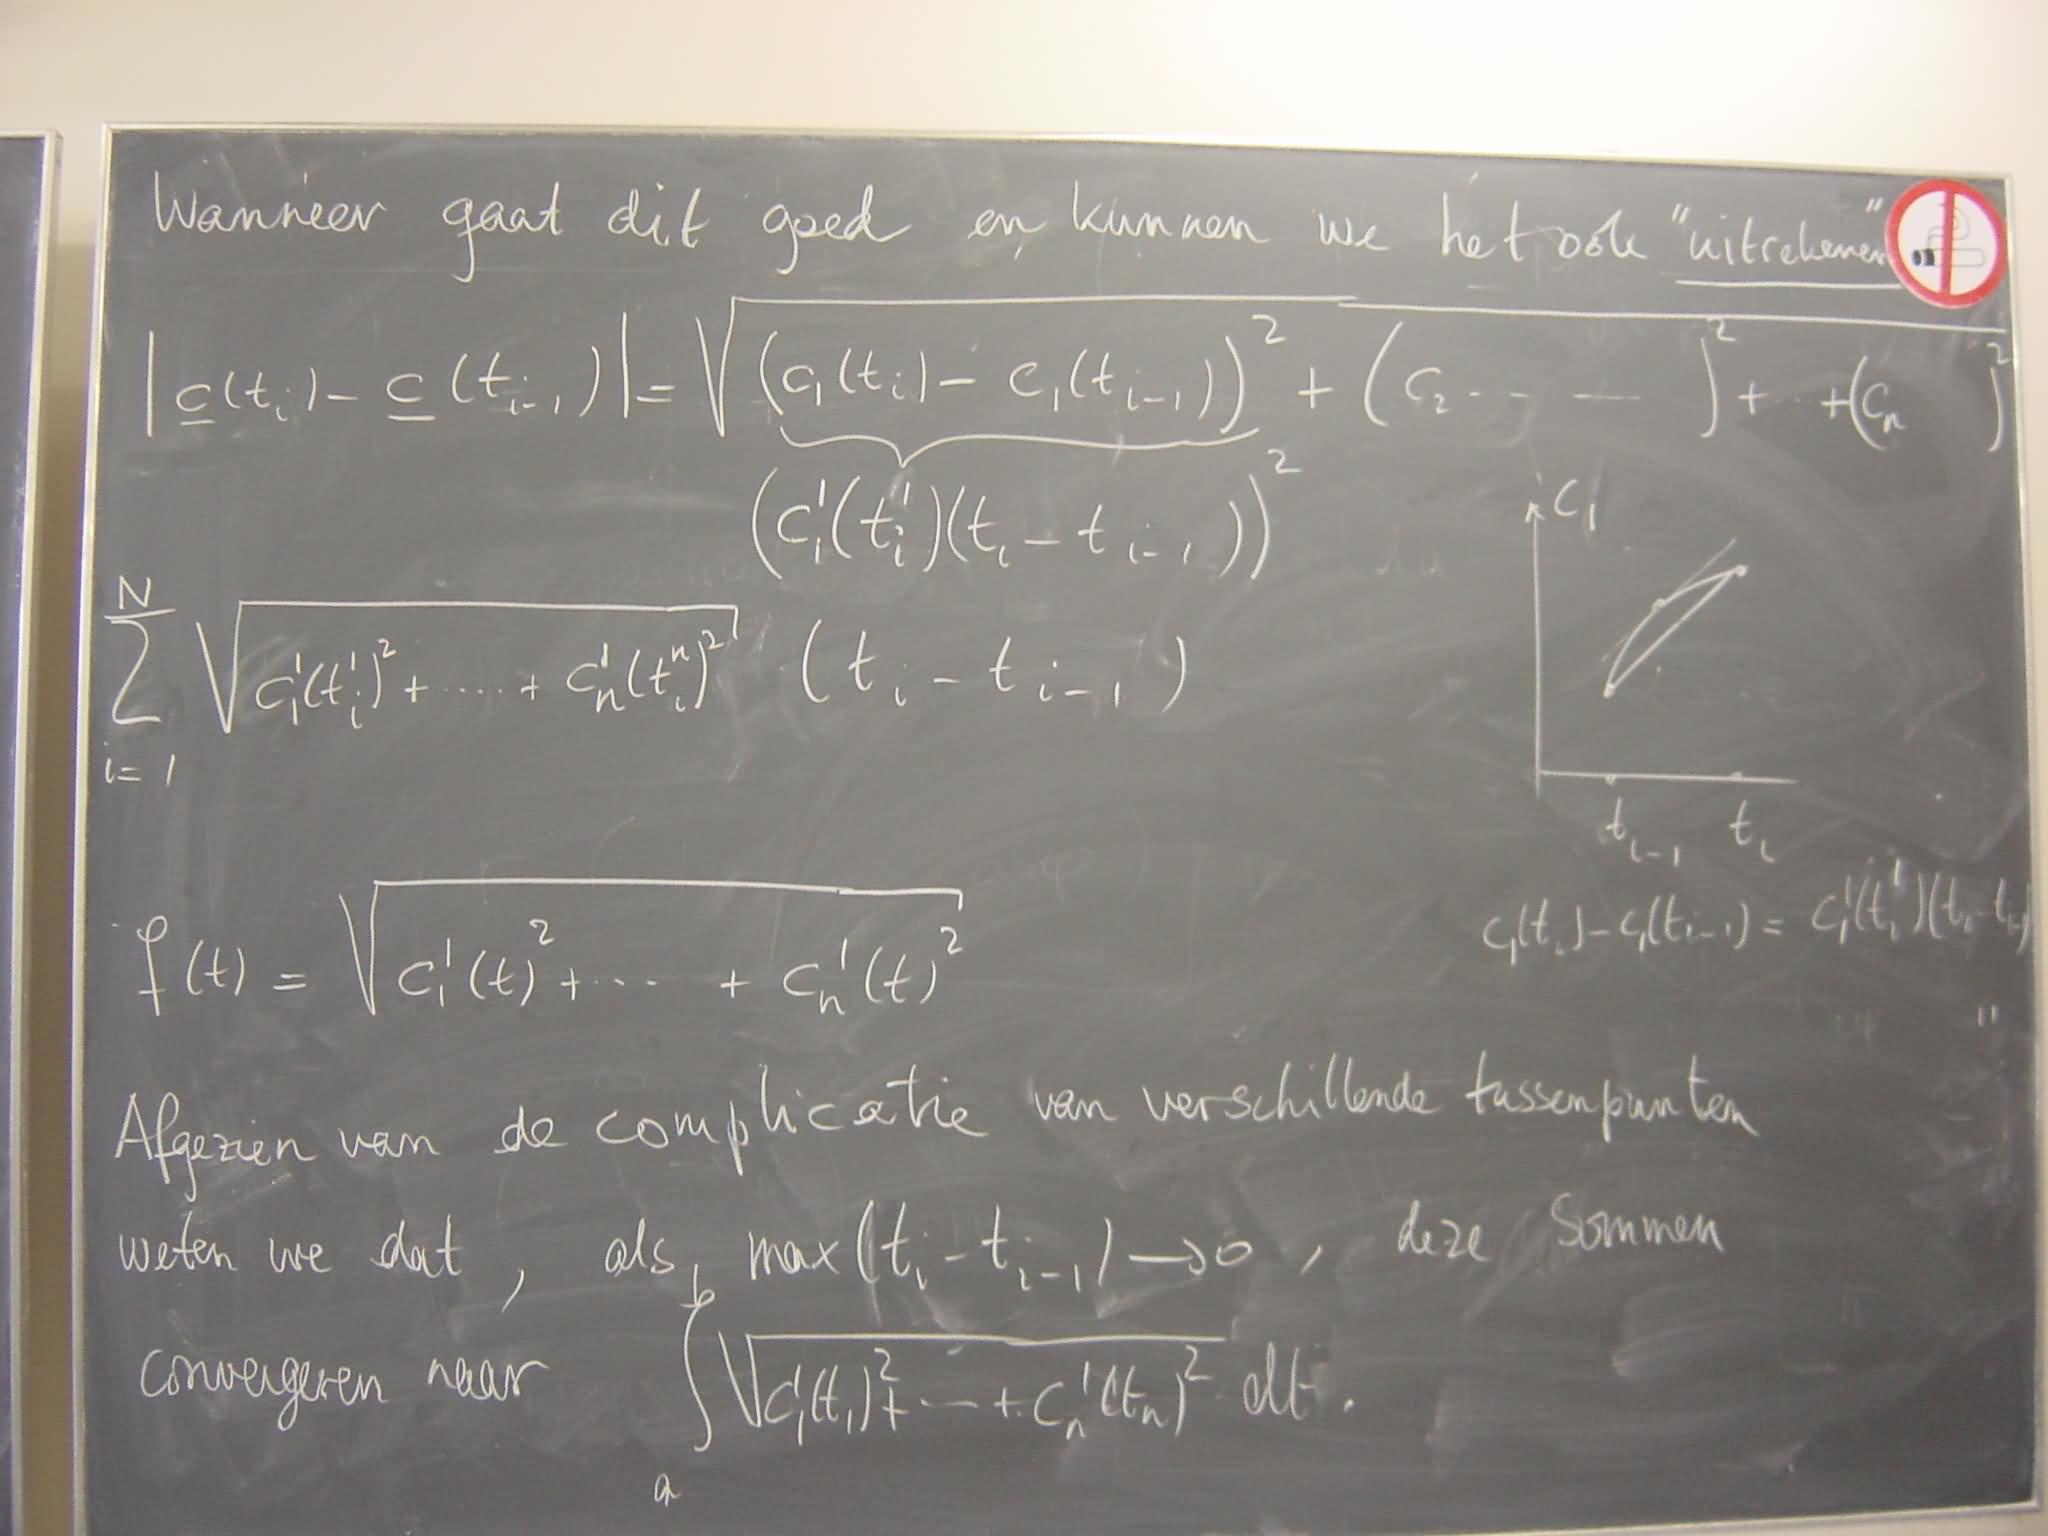 Wanneer gaat dit goed en kunnen we het ook "uitrekenen"
|c(t_i) - c(t_{i-1})| = √((c_1(t_i) - c_1(t_{i-1}))² + (c_2 ... — )² + ... + (c_n )²)
(c_1'(t_i')(t_i - t_{i-1}))²
c_1
N
∑ √(c_1'(t_i')² + .... + c_n'(t_i^n)²) (t_i - t_{i-1})
i=1
t_{i-1} t_i
c_1(t_i) - c_1(t_{i-1}) = c_1'(t_i')(t_i - t_{i-1})
f(t) = √(c_1'(t)² + ... + c_n'(t)²)
"
Afgezien van de complicatie van verschillende tussenpunten
weten we dat, als max(t_i - t_{i-1}) → 0, deze sommen
convergeren naar ∫_a^b √(c_1'(t_1)² + ... + c_n'(t_n)²) dt.